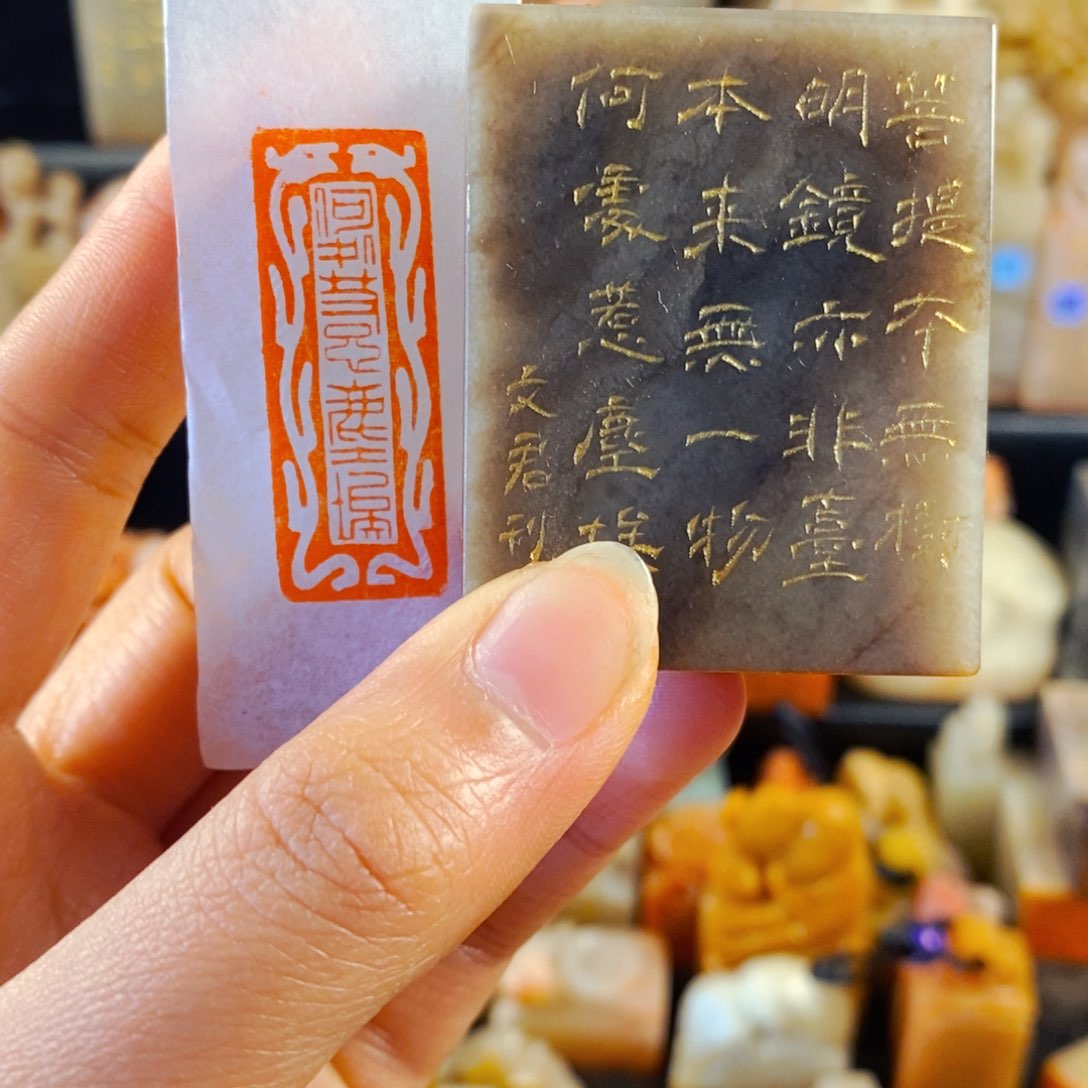 菩提本無樹
明鏡亦非臺
本来無一物
何處惹塵埃
文君刊